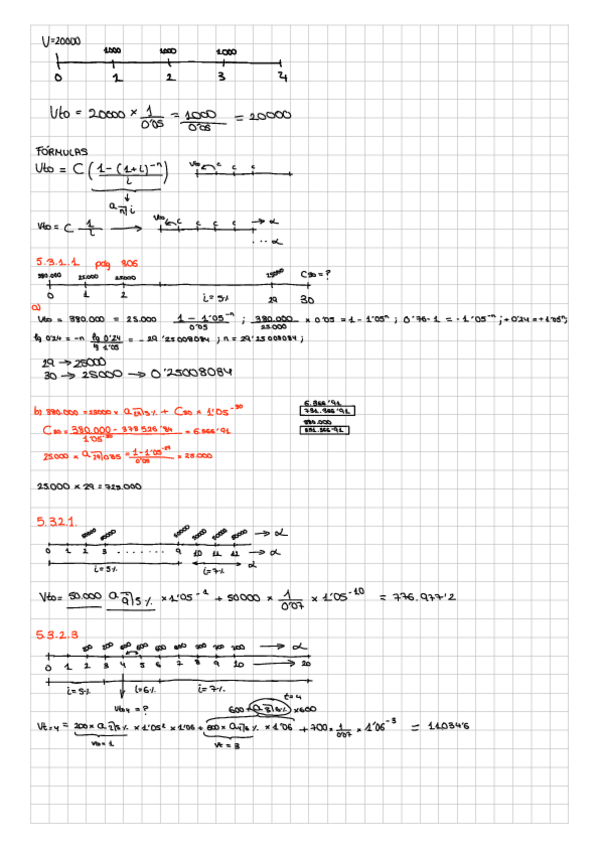 V=20000
1000 1000 1.000
0 1 2 3 4
Vto = 20000 × 1/0'05 = 1000/0'05 = 20000
FÓRMULAS
Vto = C ( 1-(1+i)^-n / i ) Vto c c c
a n|i
Vto = C 1/i → Vto c c c c → α
... α
5.3.1.1 pág 306
380.000 25.000 25.000 25000 C30=?
0 1 2 i=5% 29 30
a)
Vto = 380.000 = 25.000 1-1'05^-n / 0'05 ; 380.000/25.000 × 0'05 = 1-1'05^n ; 0'76-1 = -1'05^-n ; +0'24 = +1'05^n;
lg 0'24 = -n lg 0'24 / lg 1'05 = -29'25008084 ; n = 29'25008084 ;
29 → 25000
30 → 25000 → 0'25008084
b) 380.000 = 25000 × a 29|5% + C30 × 1'05^-30
6.366'91
731.366'91
C30 = 380.000 - 378526'84 / 1'05^-30 = 6.366'91
380.000
351.366'91
25.000 × a 29|0'05 = 1-1'05^-29 / 0'05 = 25.000
25.000 × 29 = 725.000
5.3.2.1.
→ α
0 1 2 3 ........ 9 10 11 12 → α
i=5% i=7% α
Vto = 50.000 a 9|5% × 1'05^-1 + 50000 × 1/0'07 × 1'05^-10 = 776.977'2
5.3.2.3
200 200 600 600 600 700 700 700 → α
0 1 2 3 4 5 6 7 8 9 10 → 20
i=5% i=6% i=7%
Vto4 = ? t=4
600 × a 3|6% × 600
Vt=4 = 200 × a 2|5% × 1'05² × 1'06 + 600 × a 4|6% × 1'06 + 700 × 1/0'07 × 1'06^-3 = 11034'6
Vto=1 Vt=3